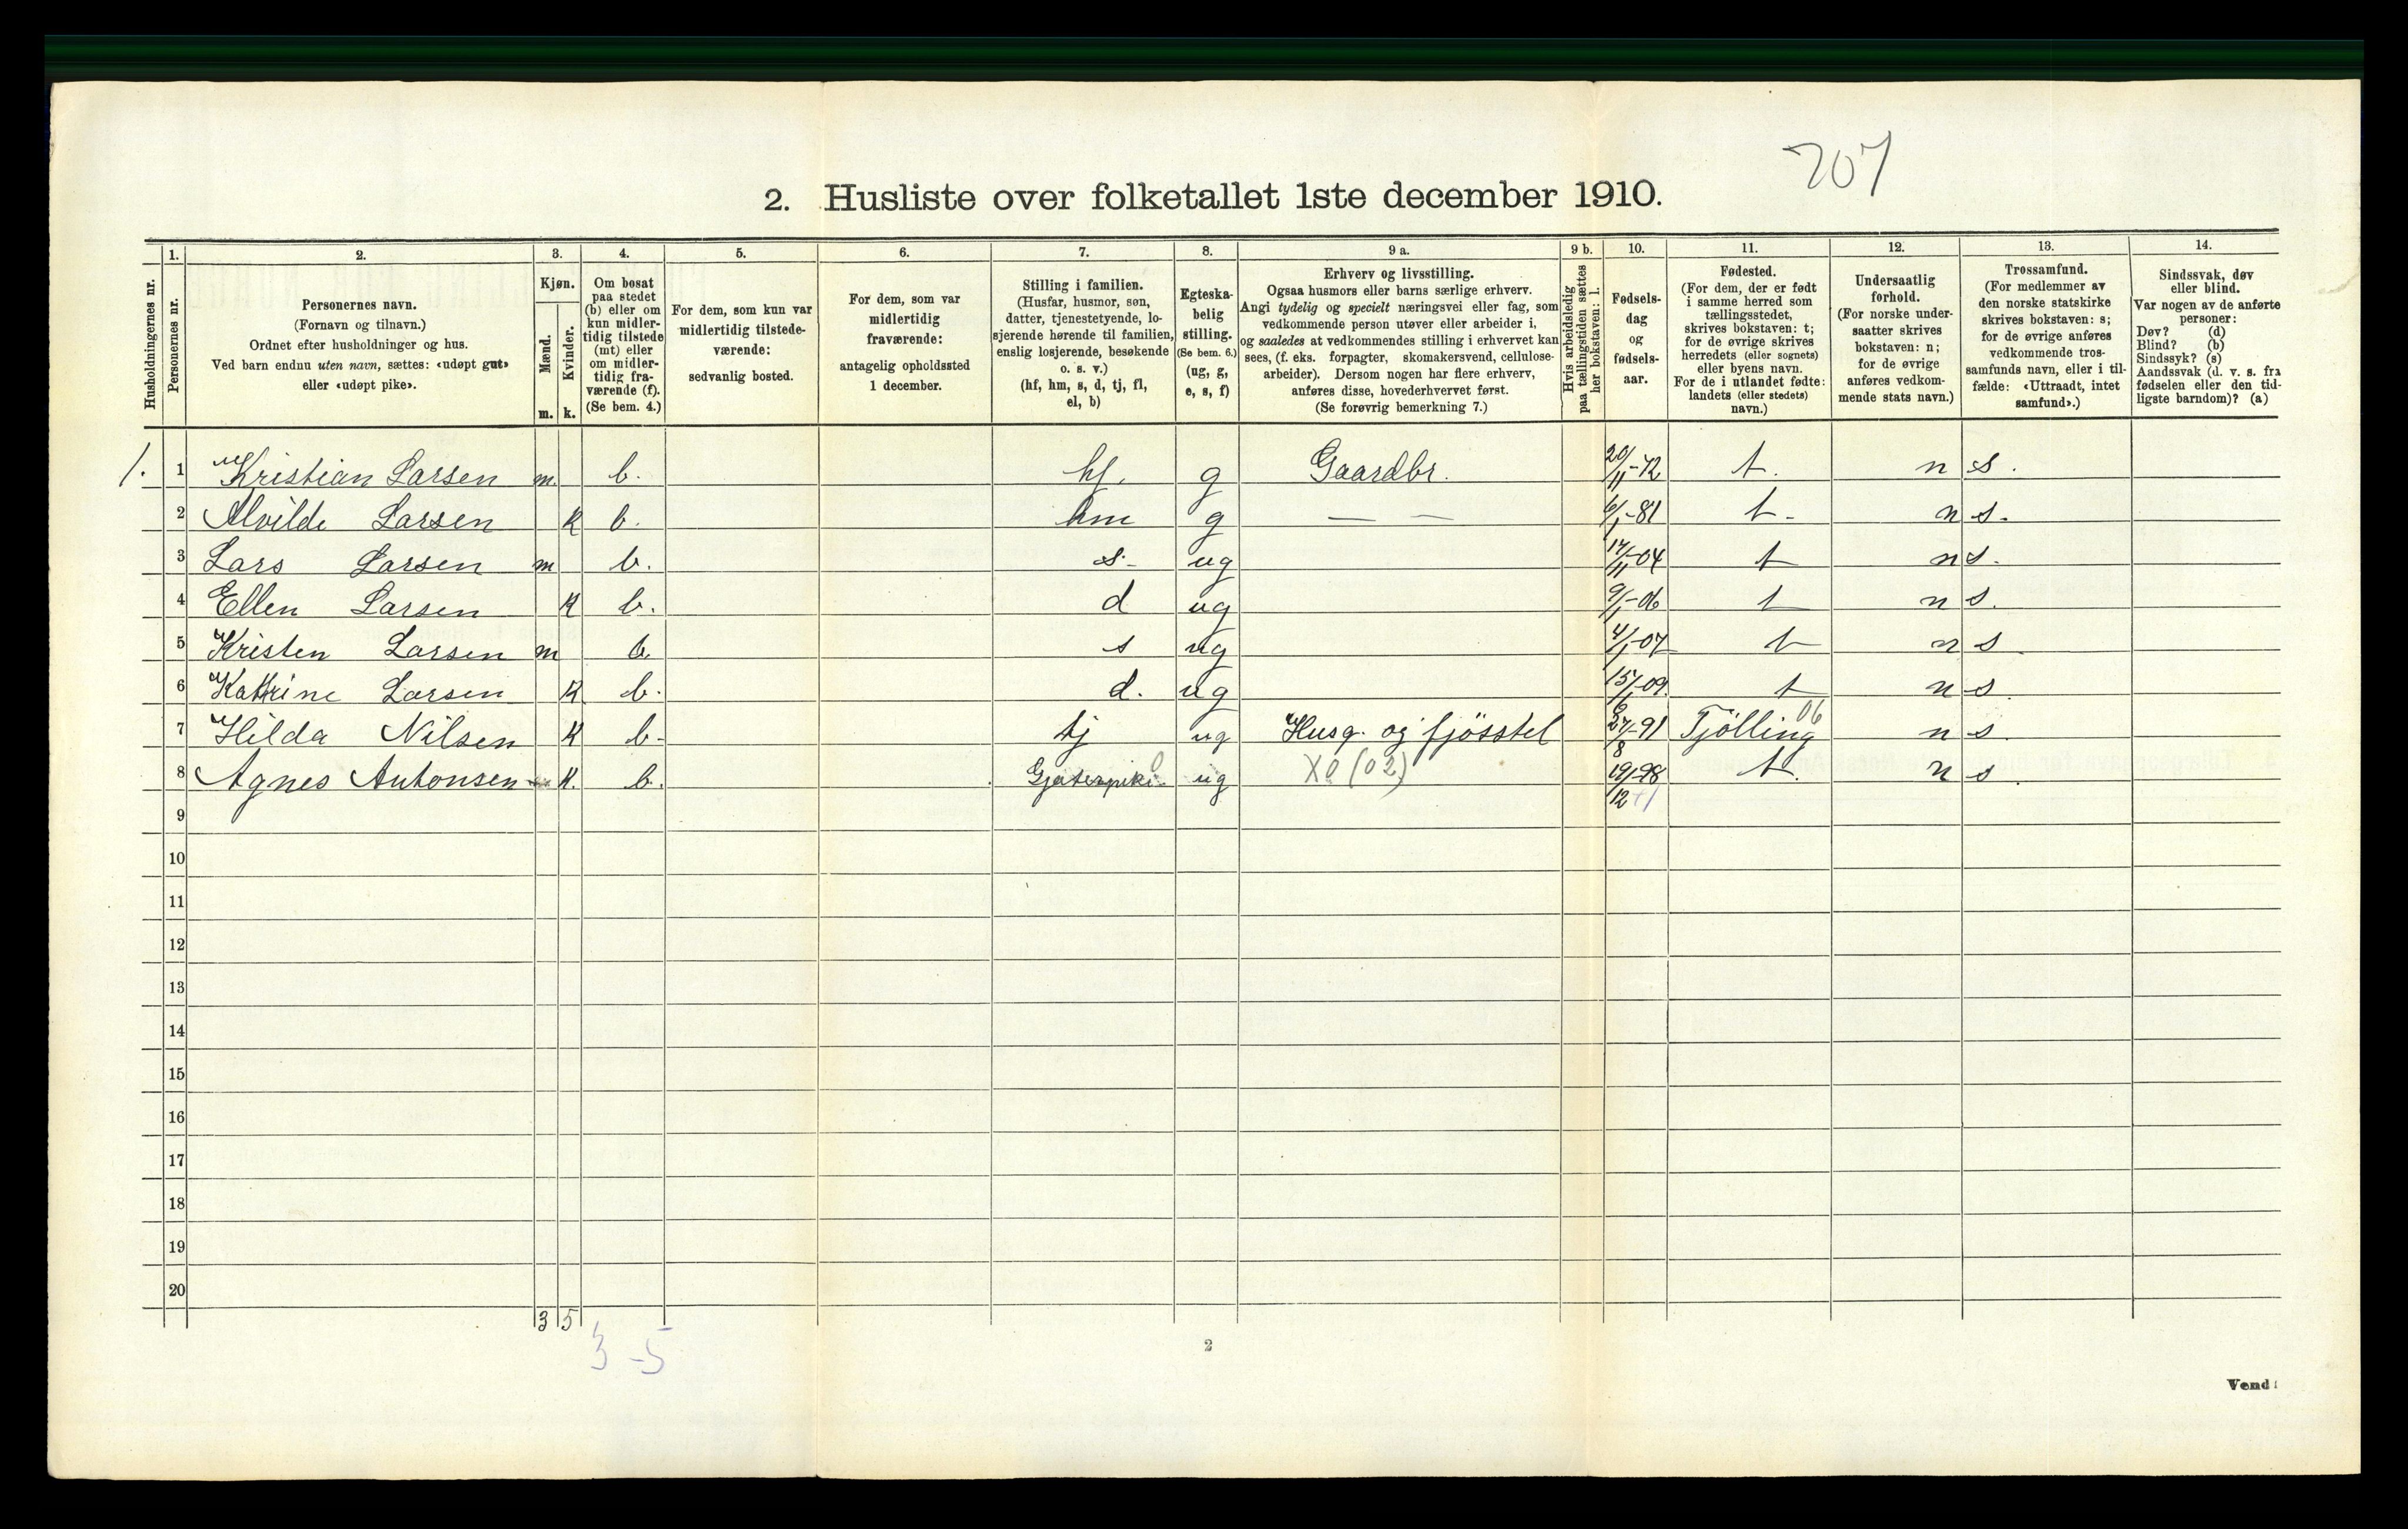 707
2. Husliste over folketallet 1ste december 1910.
1. 2. 3. 4. 5. 6. 7. 8. 9 a. 9 b. 10. 11. 12. 13. 14.
Husholdningernes nr.
Personernes nr.
Personernes navn.
(Fornavn og tilnavn.)
Ordnet efter husholdninger og hus.
Ved barn endnu uten navn, sættes: «udøpt gut»
eller «udøpt pike».
Kjøn.
Mænd.
Kvinder.
m. k.
Om bosat
paa stedet
(b) eller om
kun midler-
tidig tilstede
(mt) eller
om midler-
tidig fra-
værende (f).
(Se bem. 4.)
For dem, som kun var
midlertidig tilstede-
værende:
sedvanlig bosted.
For dem, som var
midlertidig
fraværende:
antagelig opholdssted
1 december.
Stilling i familien.
(Husfar, husmor, søn,
datter, tjenestetyende, lo-
sjerende hørende til familien,
enslig losjerende, besøkende
o. s. v.)
(hf, hm, s, d, tj, fl,
el, b)
Egteska-
belig
stilling.
(Se bem. 6.)
(ug, g,
e, s, f)
Erhverv og livsstilling.
Ogsaa husmors eller barns særlige erhverv.
Angi tydelig og specielt næringsvei eller fag, som
vedkommende person utøver eller arbeider i,
og saaledes at vedkommendes stilling i erhvervet kan
sees, (f. eks. forpagter, skomakersvend, cellulose-
arbeider). Dersom nogen har flere erhverv,
anføres disse, hovederhvervet først.
(Se forøvrig bemerkning 7.)
Hvis arbeidsledig
paa tællingstiden sættes
her bokstaven: l.
Fødsels-
dag
og
fødsels-
aar.
Fødested.
(For dem, der er født
i samme herred som
tællingsstedet,
skrives bokstaven: t;
for de øvrige skrives
herredets (eller sognets)
eller byens navn.
For de i utlandet fødte:
landets (eller stedets)
navn.)
Undersaatlig
forhold.
(For norske under-
saatter skrives
bokstaven: n;
for de øvrige
anføres vedkom-
mende stats navn.)
Trossamfund.
(For medlemmer av
den norske statskirke
skrives bokstaven: s;
for de øvrige anføres
vedkommende tros-
samfunds navn, eller i til-
fælde: «Uttraadt, intet
samfund».)
Sindssvak, døv
eller blind.
Var nogen av de anførte
personer:
Døv? (d)
Blind? (b)
Sindssyk? (s)
Aandssvak (d. v. s. fra
fødselen eller den tid-
ligste barndom)? (a)
1. 1 Kristian Larsen m. b. hf. g Gaardbr. 20/11-72 t. n s.
2 Alvilde Larsen k b. hm g — — 6/1-81 t- n s.
3 Lars Larsen m b. s- ug 17/11-04 t n s.
4 Ellen Larsen k b. d ug 9/1-06 t n s.
5 Kristen Larsen m b. s ug 4/1-07 t n s
6 Kathrine Larsen k b. d. ug 15/6-09 t n s.
7 Hilda Nilsen k b- tj ug Husg. og fjösstel 27/8-91 Tjölling 06 n s.
8 Agnes Antonsen k. b. Gjæterpike ug X0 (02) 19/12-98 t. n s.
9
10
11
12
13
14
15
16
17
18
19
20
3 5
3-5
2
Vend!